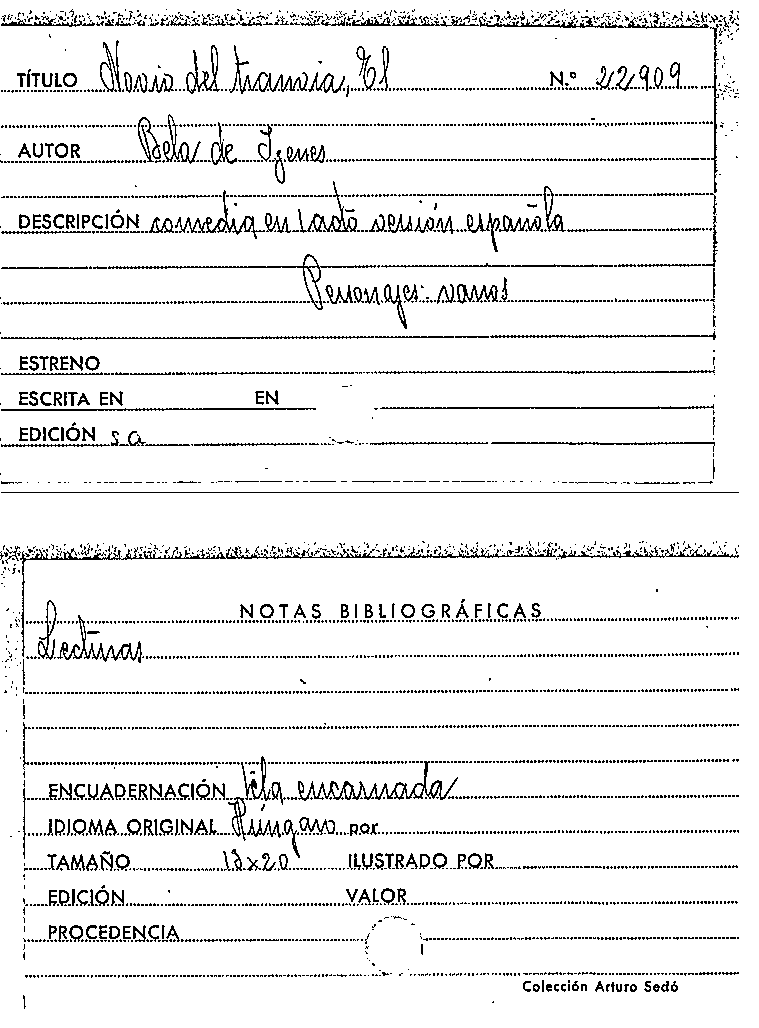 TÍTULO Novio del tranvia, El N.º 22909
AUTOR Bela de Izenes
DESCRIPCIÓN comedia en 1 acto versión española
Personajes: varios
ESTRENO
ESCRITA EN EN
EDICIÓN s a
NOTAS BIBLIOGRÁFICAS
Lecturas
ENCUADERNACIÓN tela encarnada
IDIOMA ORIGINAL Húngaro por
TAMAÑO 13x20 ILUSTRADO POR
EDICIÓN VALOR
PROCEDENCIA
Colección Arturo Sedó